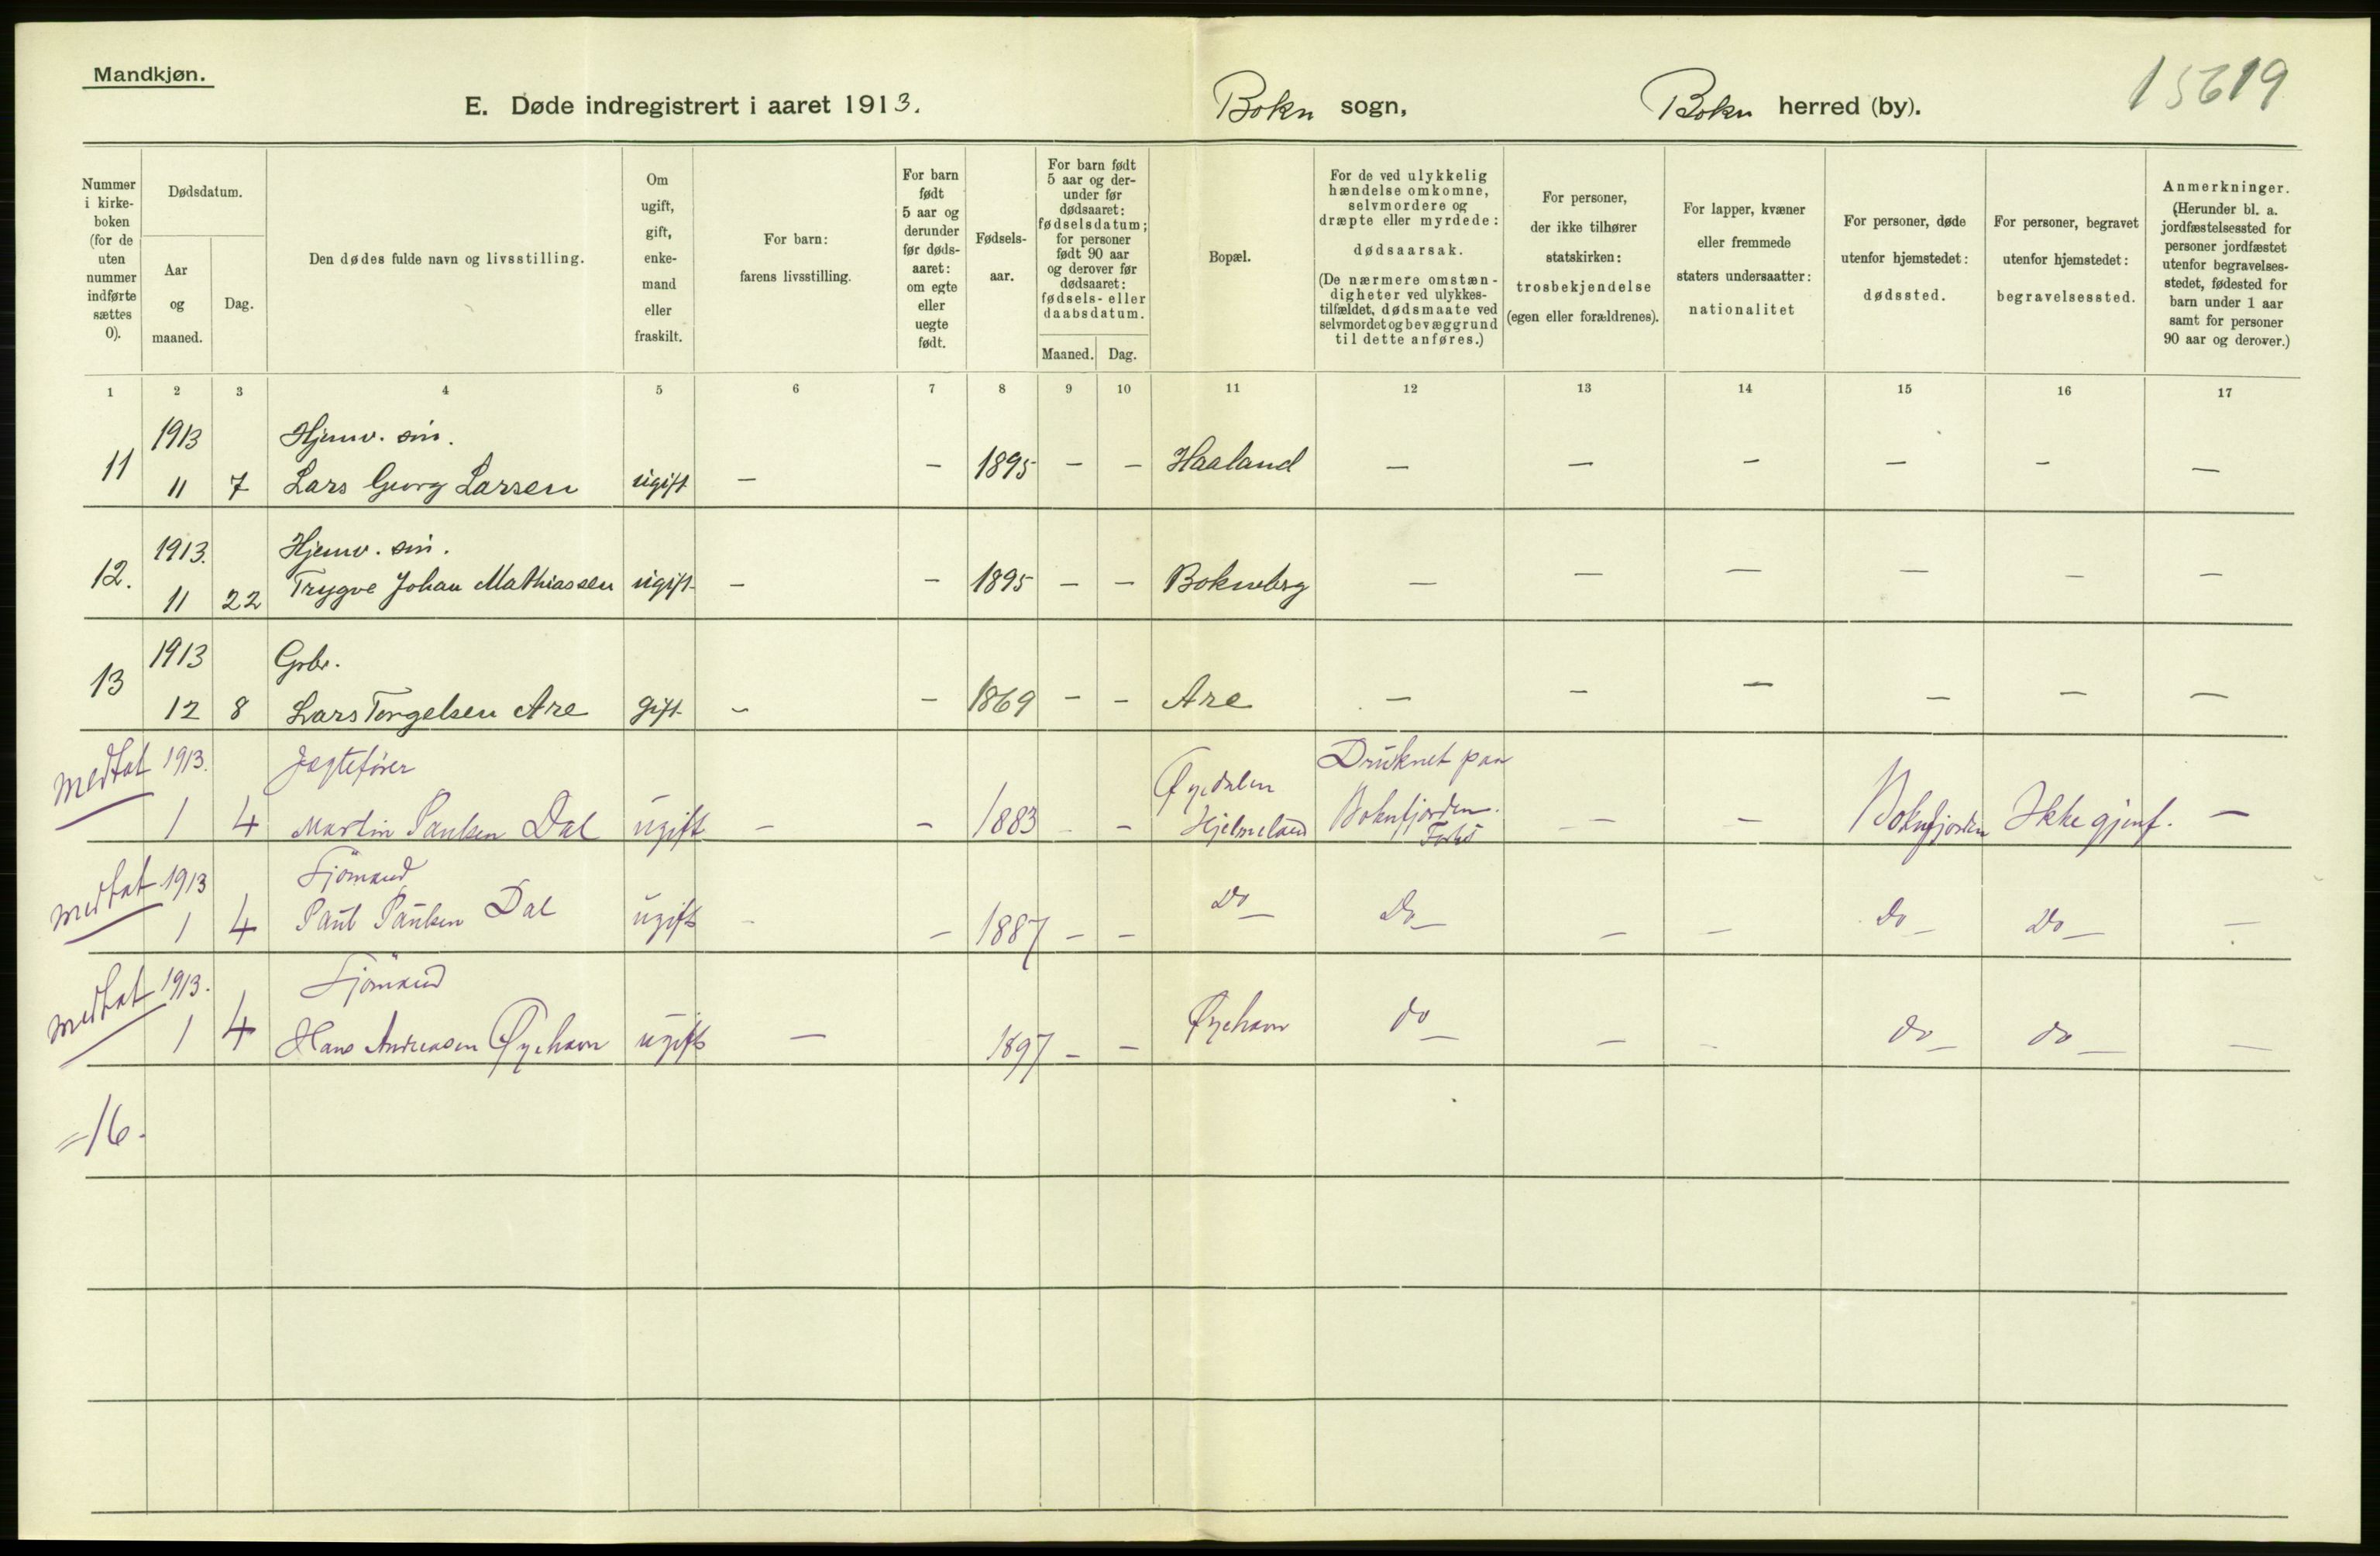 Mandkjøn.
E. Døde indregistrert i aaret 1913. Bokn sogn, Bokn herred (by).
15619
Nummer i kirke-boken (for de uten nummer indførte sættes 0).
Dødsdatum.
Aar og maaned.
Dag.
Den dødes fulde navn og livsstilling.
Om ugift, gift, enke-mand eller fraskilt.
For barn: farens livsstilling.
For barn født 5 aar og derunder før døds-aaret: om egte eller uegte født.
Fødsels-aar.
For barn født 5 aar og der-under før dødsaaret: fødselsdatum; for personer født 90 aar og derover før dødsaaret: fødsels- eller daabsdatum.
Maaned.
Dag.
Bopæl.
For de ved ulykkelig hændelse omkomne, selvmordere og dræpte eller myrdede: dødsaarsak.
(De nærmere omstæn-digheter ved ulykkes-tilfældet, dødsmaate ved selvmordet og bevæggrund til dette anføres.)
For personer, der ikke tilhører statskirken: trosbekjendelse (egen eller forældrenes).
For lapper, kvæner eller fremmede staters undersaatter: nationalitet
For personer, døde utenfor hjemstedet: dødssted.
For personer, begravet utenfor hjemstedet: begravelsessted.
Anmerkninger.
(Herunder bl. a. jordfæstelsessted for personer jordfæstet utenfor begravelses-stedet, fødested for barn under 1 aar samt for personer 90 aar og derover.)
1 2 3 4 5 6 7 8 9 10 11 12 13 14 15 16 17
1913 Hjemv. søn.
11 11 7 Lars Georg Larsen ugift – – 1895 – – Haaland – – – – – –
1913. Hjemv. søn.
12. 11 22 Trygve Johan Mathiassen ugift – – 1895 – – Bokneberg – – – – – –
1913 Grbr.
13 12 8 Lars Torgelsen Are gift – – 1869 – – Are – – – – – –
medtat 1913. Jagtefører Øyedalen Druknet paa
1 4 Martin Paulsen Dal ugift – – 1883 – – Hjelmeland Boknfjorden. – – Boknfjorden Ikke gjenf. –
medtat 1913 Sjömand
1 4 Paul Paulsen Dal ugift – – 1887 – – Do – Do – – – Do – Do – –
medtat 1913. Sjömand
1 4 Hans Andreasen Øyehavn ugift – 1897 – – Øyehavn do – – – do – do – –
=16.